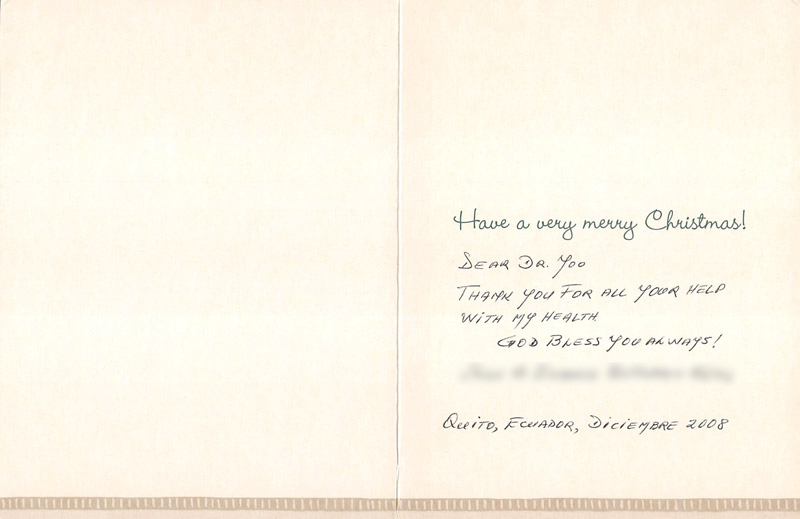 Have a very merry Christmas!
DEAR DR. YOO
THANK YOU FOR ALL YOUR HELP
WITH MY HEALTH.
GOD BLESS YOU ALWAYS!
QUITO, ECUADOR, DICIEMBRE 2008